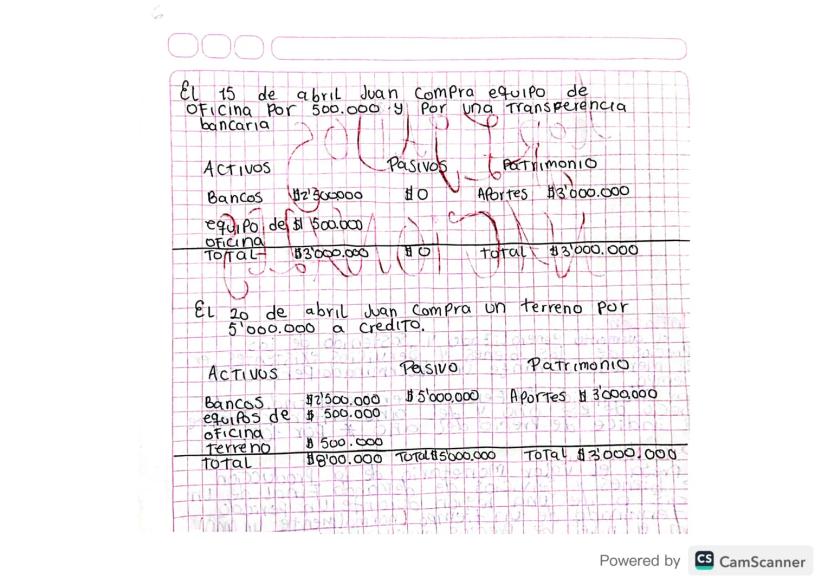 El 15 de abril Juan compra equipo de
oficina por 500.000 y por una transferencia
bancaria
ACTIVOS Pasivos Patrimonio
Bancos $2'500000 $0 Aportes $3'000.000
equipo de $ 500.000
oficina
Total $3'000.000 $0 total $3'000.000
El 20 de abril Juan compra un terreno por
5'000.000 a credito.
ACTIVOS Pasivo Patrimonio
Bancos $2'500.000 $5'000,000 Aportes $3'000,000
equipos de $ 500.000
oficina
Terreno $ 500.000
Total $8'00.000 Total $5'000,000 Total $3'000.000
Powered by CS CamScanner